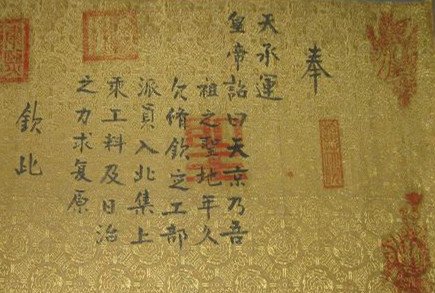 奉
天承运
皇帝詔曰天京乃吾
祖之聖地年久
欠脩欽定工部
派員入北集上
乘工料及日治
之力求复原
欽此